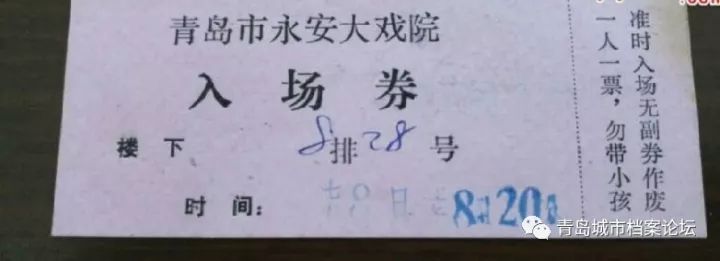 青岛市永安大戏院
入场券
楼下 8排28号
时间: 8月20日
准时入场无副券作废
一人一票,勿带小孩
青岛城市档案论坛